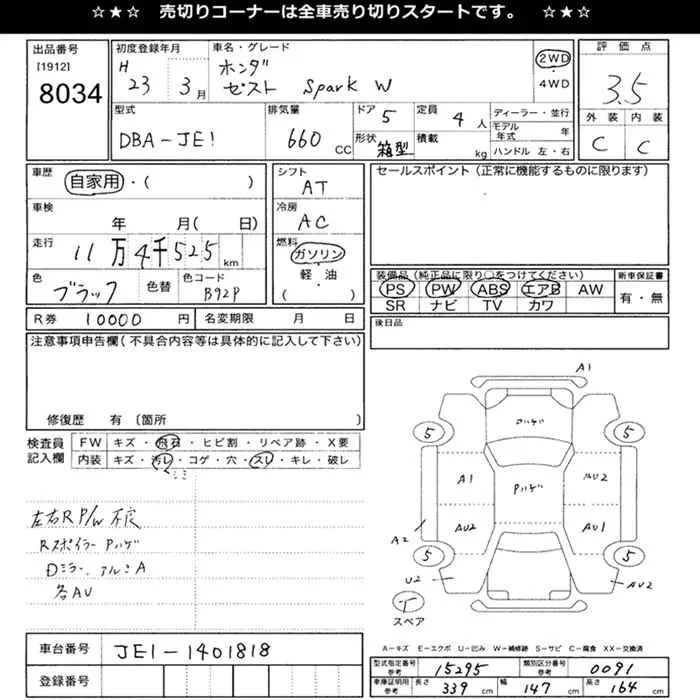 ☆★☆ 売切りコーナーは全車売り切りスタートです。 ☆★☆
出品番号
[1912]
8034
初度登録年月
H
23 3月
車名・グレード
ホンダ
ゼスト Spark W
2WD
・
4WD
評価点
3.5
外装 内装
C C
型式
DBA-JE1
排気量
660 CC
ドア 5
形状 箱型
定員 4 人
積載 kg
ディーラー・並行
モデル年式 年
ハンドル 左・右
車歴
自家用・( )
車検
年 月( 日)
走行 11万4千525 km
色
ブラック
色替
色コード
B92P
シフト
AT
冷房
AC
燃料
ガソリン
・
軽・油
( )
セールスポイント(正常に機能するものに限ります)
装備品(純正品に限り○をつけてください)
PS PW ABS エアB AW
SR ナビ TV カワ
新車保証書
有・無
R券 10000 円 名変期限 月 日
後日品
注意事項申告欄(不具合内容等は具体的に記入して下さい)
修復歴 有〔箇所 〕
検査員記入欄
FW キズ・飛石・ヒビ割・リペア跡・X要
内装 キズ・汚レ・コゲ・穴・スレ・キレ・破レ
シミ
左右R P/W 不良
Rスポイラー Pハゲ
Dミラー、アルミA
各AU
A1
Pハゲ
5 5
A1 Pハゲ AU2
AU2 AU1
A2
5 5
U2 AU2
T
スペア
A－キズ E－エクボ U－凹み W－補修跡 S－サビ C－腐食 XX－交換済
車台番号 JE1-1401818
登録番号
型式指定番号 参考 15295 類別区分番号 参考 0091
車庫証明用 参考 長さ 339 cm 幅 147 cm 高さ 164 cm